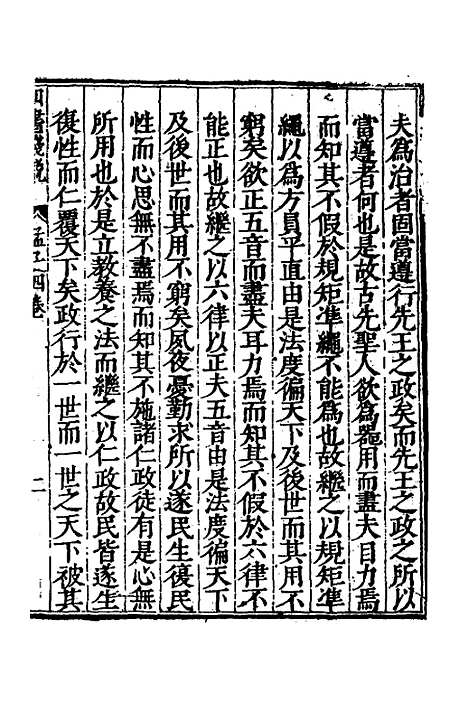 夫爲治者固當遵行先王之政矣而先王之政之所以
當遵者何也是故古先聖人欲爲噐用而盡夫目力焉
而知其不假於規矩凖繩不能爲也故繼之以規矩凖
繩以爲方員平直由是法度徧天下及後世而其用不
窮矣欲正五音而盡夫耳力焉而知其不假於六律不
能正也故繼之以六律以正夫五音由是法度徧天下
及後世而其用不窮矣夙夜憂勤求所以遂民生復民
性而心思無不盡焉而知其不施諸仁政徒有是心無
所用也於是立教養之法而繼之以仁政故民皆遂生
復性而仁覆天下矣政行於一世而一世之天下被其
四書 說 孟子四卷 二